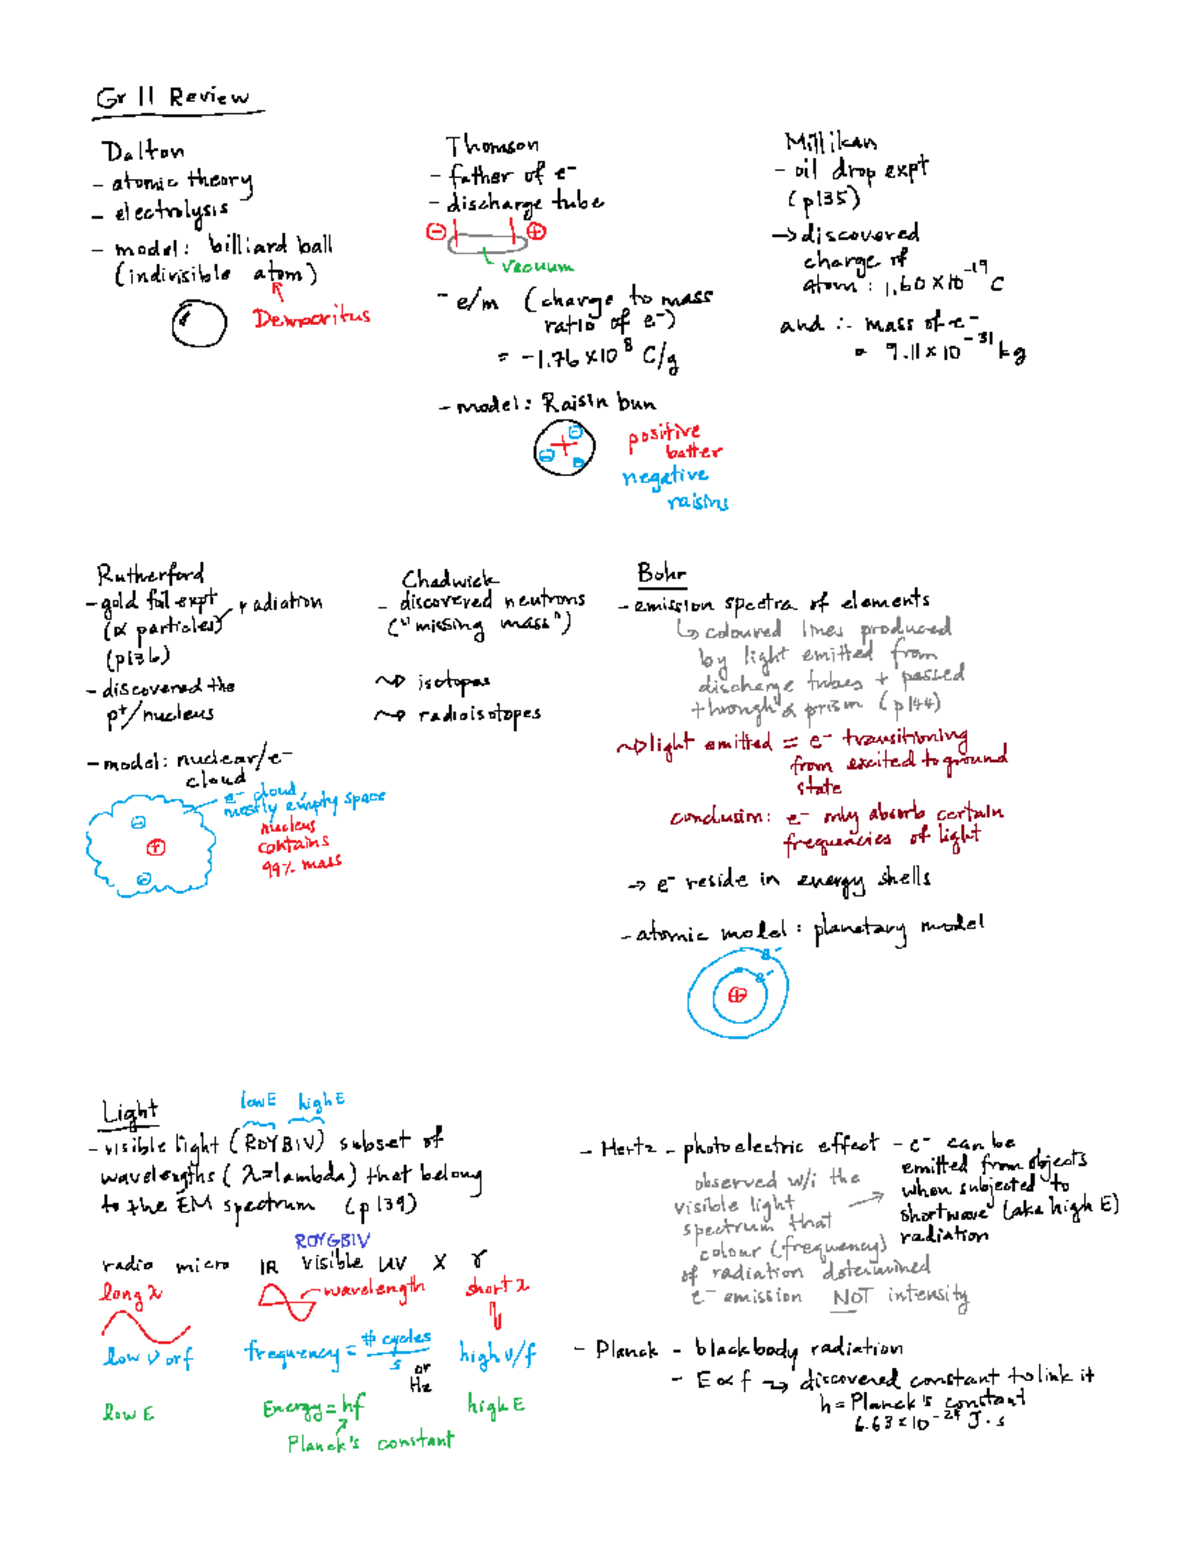 Gr 11 Review
Dalton
- atomic theory
- electrolysis
- model: billiard ball
(indivisible atom)
Democritus
Thomson
- father of e⁻
- discharge tube
⊖ ⊕
vacuum
- e/m (charge to mass
ratio of e⁻)
= -1.76 x10⁸ C/g
- model: Raisin bun
positive
batter
negative
raisins
Millikan
- oil drop expt
(p135)
→ discovered
charge of
atom: 1.60 x 10⁻¹⁹ C
and ∴ mass of e⁻
= 9.11 x 10⁻³¹ kg
Rutherford
- gold foil expt
(α particles) radiation
(p136)
- discovered the
p⁺/nucleus
- model: nuclear/e⁻
cloud
e⁻ cloud,
mostly empty space
nucleus
contains
99% mass
Chadwick
- discovered neutrons
("missing mass")
→ isotopes
→ radioisotopes
Bohr
- emission spectra of elements
↳ coloured lines produced
by light emitted from
discharge tubes + passed
through a prism (p144)
→ light emitted = e⁻ transitioning
from excited to ground
state
conclusion: e⁻ only absorb certain
frequencies of light
→ e⁻ reside in energy shells
- atomic model: planetary model
e⁻
e⁻
⊕
Light
low E high E
- visible light (ROYBIV) subset of
wavelengths (λ=lambda) that belong
to the EM spectrum (p139)
ROYGBIV
radio micro IR visible UV X γ
long λ wavelength short λ
low ν or f frequency = # cycles / s or Hz high ν/f
low E Energy = hf high E
Planck's constant
- Hertz - photoelectric effect - e⁻ can be
emitted from objects
when subjected to
shortwave (aka high E)
radiation
observed w/i the
visible light
spectrum that
colour (frequency)
of radiation determined
e⁻ emission NOT intensity
- Planck - blackbody radiation
- E ∝ f → discovered constant to link it
h = Planck's constant
6.63 x 10⁻³⁴ J·s